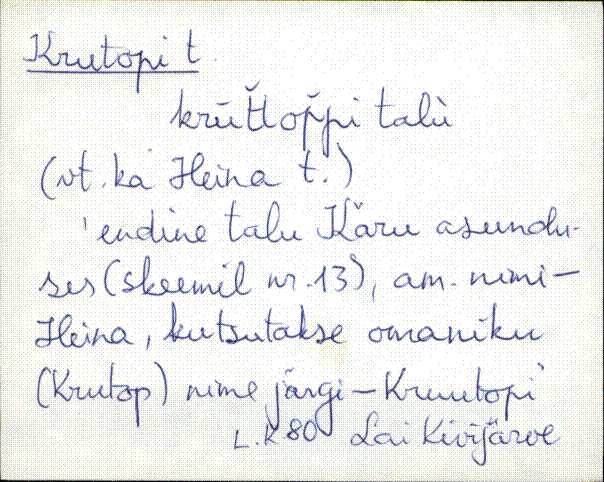 Krutopi t.
krūt̆t̆op̆pi talù
(vt. ka Heina t.)
'endine talu Käru asundu-
ses (skeemil nr. 13), am. nimi-
Heina, kutsutakse omaniku
(Krutop) nime järgi - Kruutopi'
L.K 80 Lai Kivijärve